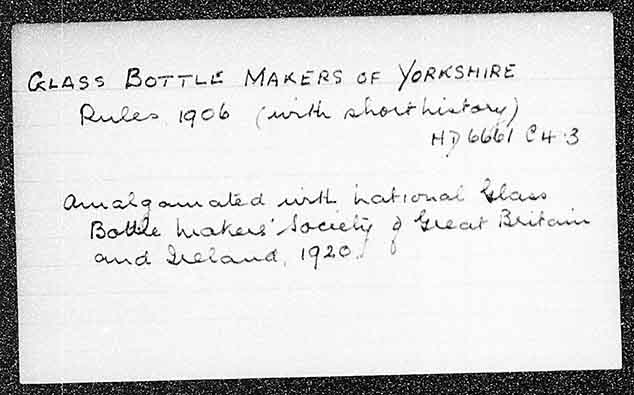 GLASS BOTTLE MAKERS OF YORKSHIRE
Rules 1906 (with short history)
HD 6661 C4.3
Amalgamated with National Glass
Bottle Makers' Society of Great Britain
and Ireland, 1920.